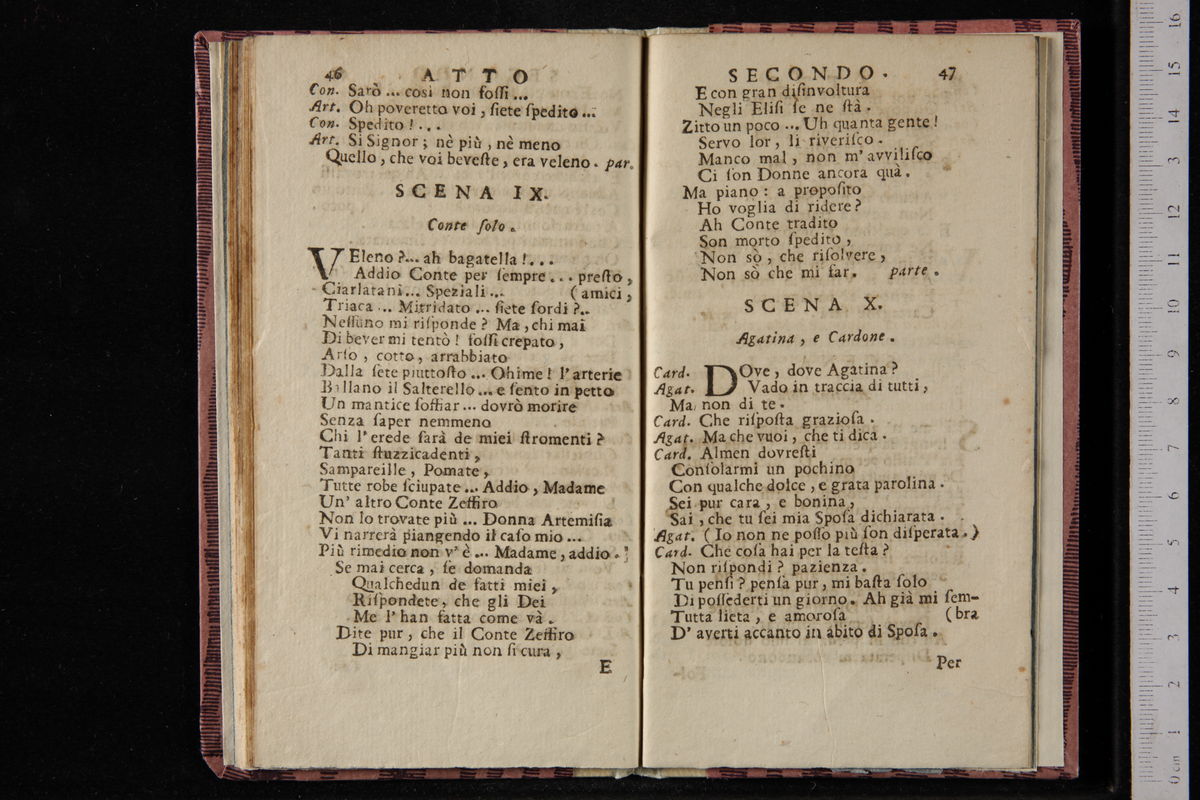 46 ATTO
Con. Sarò ... così non foſſi ...
Art. Oh poveretto voi, ſiete ſpedito ...
Con. Spedito! ...
Art. Si Signor; nè più, nè meno
Quello, che voi beveſte, era veleno. par.
SCENA IX.
Conte ſolo.
VEleno?... ah bagatella!...
Addio Conte per ſempre ... preſto,
Ciarlatani ... Speziali ... (amici,
Triaca ... Mitridato ... ſiete ſordi?..
Neſſuno mi riſponde? Ma, chi mai
Di bever mi tentò! foſſi crepato,
Arſo, cotto, arrabbiato
Dalla ſete piuttoſto ... Ohime! l'arterie
Ballano il Salterello ... e ſento in petto
Un mantice ſoffiar ... dovrò morire
Senza ſaper nemmeno
Chi l'erede ſarà de miei ſtromenti?
Tanti ſtuzzicadenti,
Sampareille, Pomate,
Tutte robe ſciupate ... Addio, Madame
Un' altro Conte Zeffiro
Non lo trovate più ... Donna Artemiſia
Vi narrerà piangendo il caſo mio ...
Più rimedio non v'è ... Madame, addio.
Se mai cerca, ſe domanda
Qualchedun de fatti miei,
Riſpondete, che gli Dei
Me l'han fatta come và.
Dite pur, che il Conte Zeffiro
Di mangiar più non ſi cura,
E
SECONDO. 47
E con gran diſinvoltura
Negli Eliſi ſe ne ſtà.
Zitto un poco ... Uh quanta gente!
Servo lor, li riveriſco.
Manco mal, non m'avviliſco
Ci ſon Donne ancora quà.
Ma piano: a propoſito
Ho voglia di ridere?
Ah Conte tradito
Son morto ſpedito,
Non sò, che riſolvere,
Non sò che mi far. parte.
SCENA X.
Agatina, e Cardone.
Card. DOve, dove Agatina?
Agat. Vado in traccia di tutti,
Ma non di te.
Card. Che riſpoſta grazioſa.
Agat. Ma che vuoi, che ti dica.
Card. Almen dovreſti
Conſolarmi un pochino
Con qualche dolce, e grata parolina.
Sei pur cara, e bonina,
Sai, che tu ſei mia Spoſa dichiarata.
Agat. (Io non ne poſſo più ſon diſperata.)
Card. Che coſa hai per la teſta?
Non riſpondi? pazienza.
Tu penſi? penſa pur, mi baſta ſolo
Di poſſederti un giorno. Ah già mi ſem-
Tutta lieta, e amoroſa (bra
D' averti accanto in abito di Spoſa.
Per
16
15
14
13
12
11
10
9
8
7
6
5
4
3
2
1
0 cm